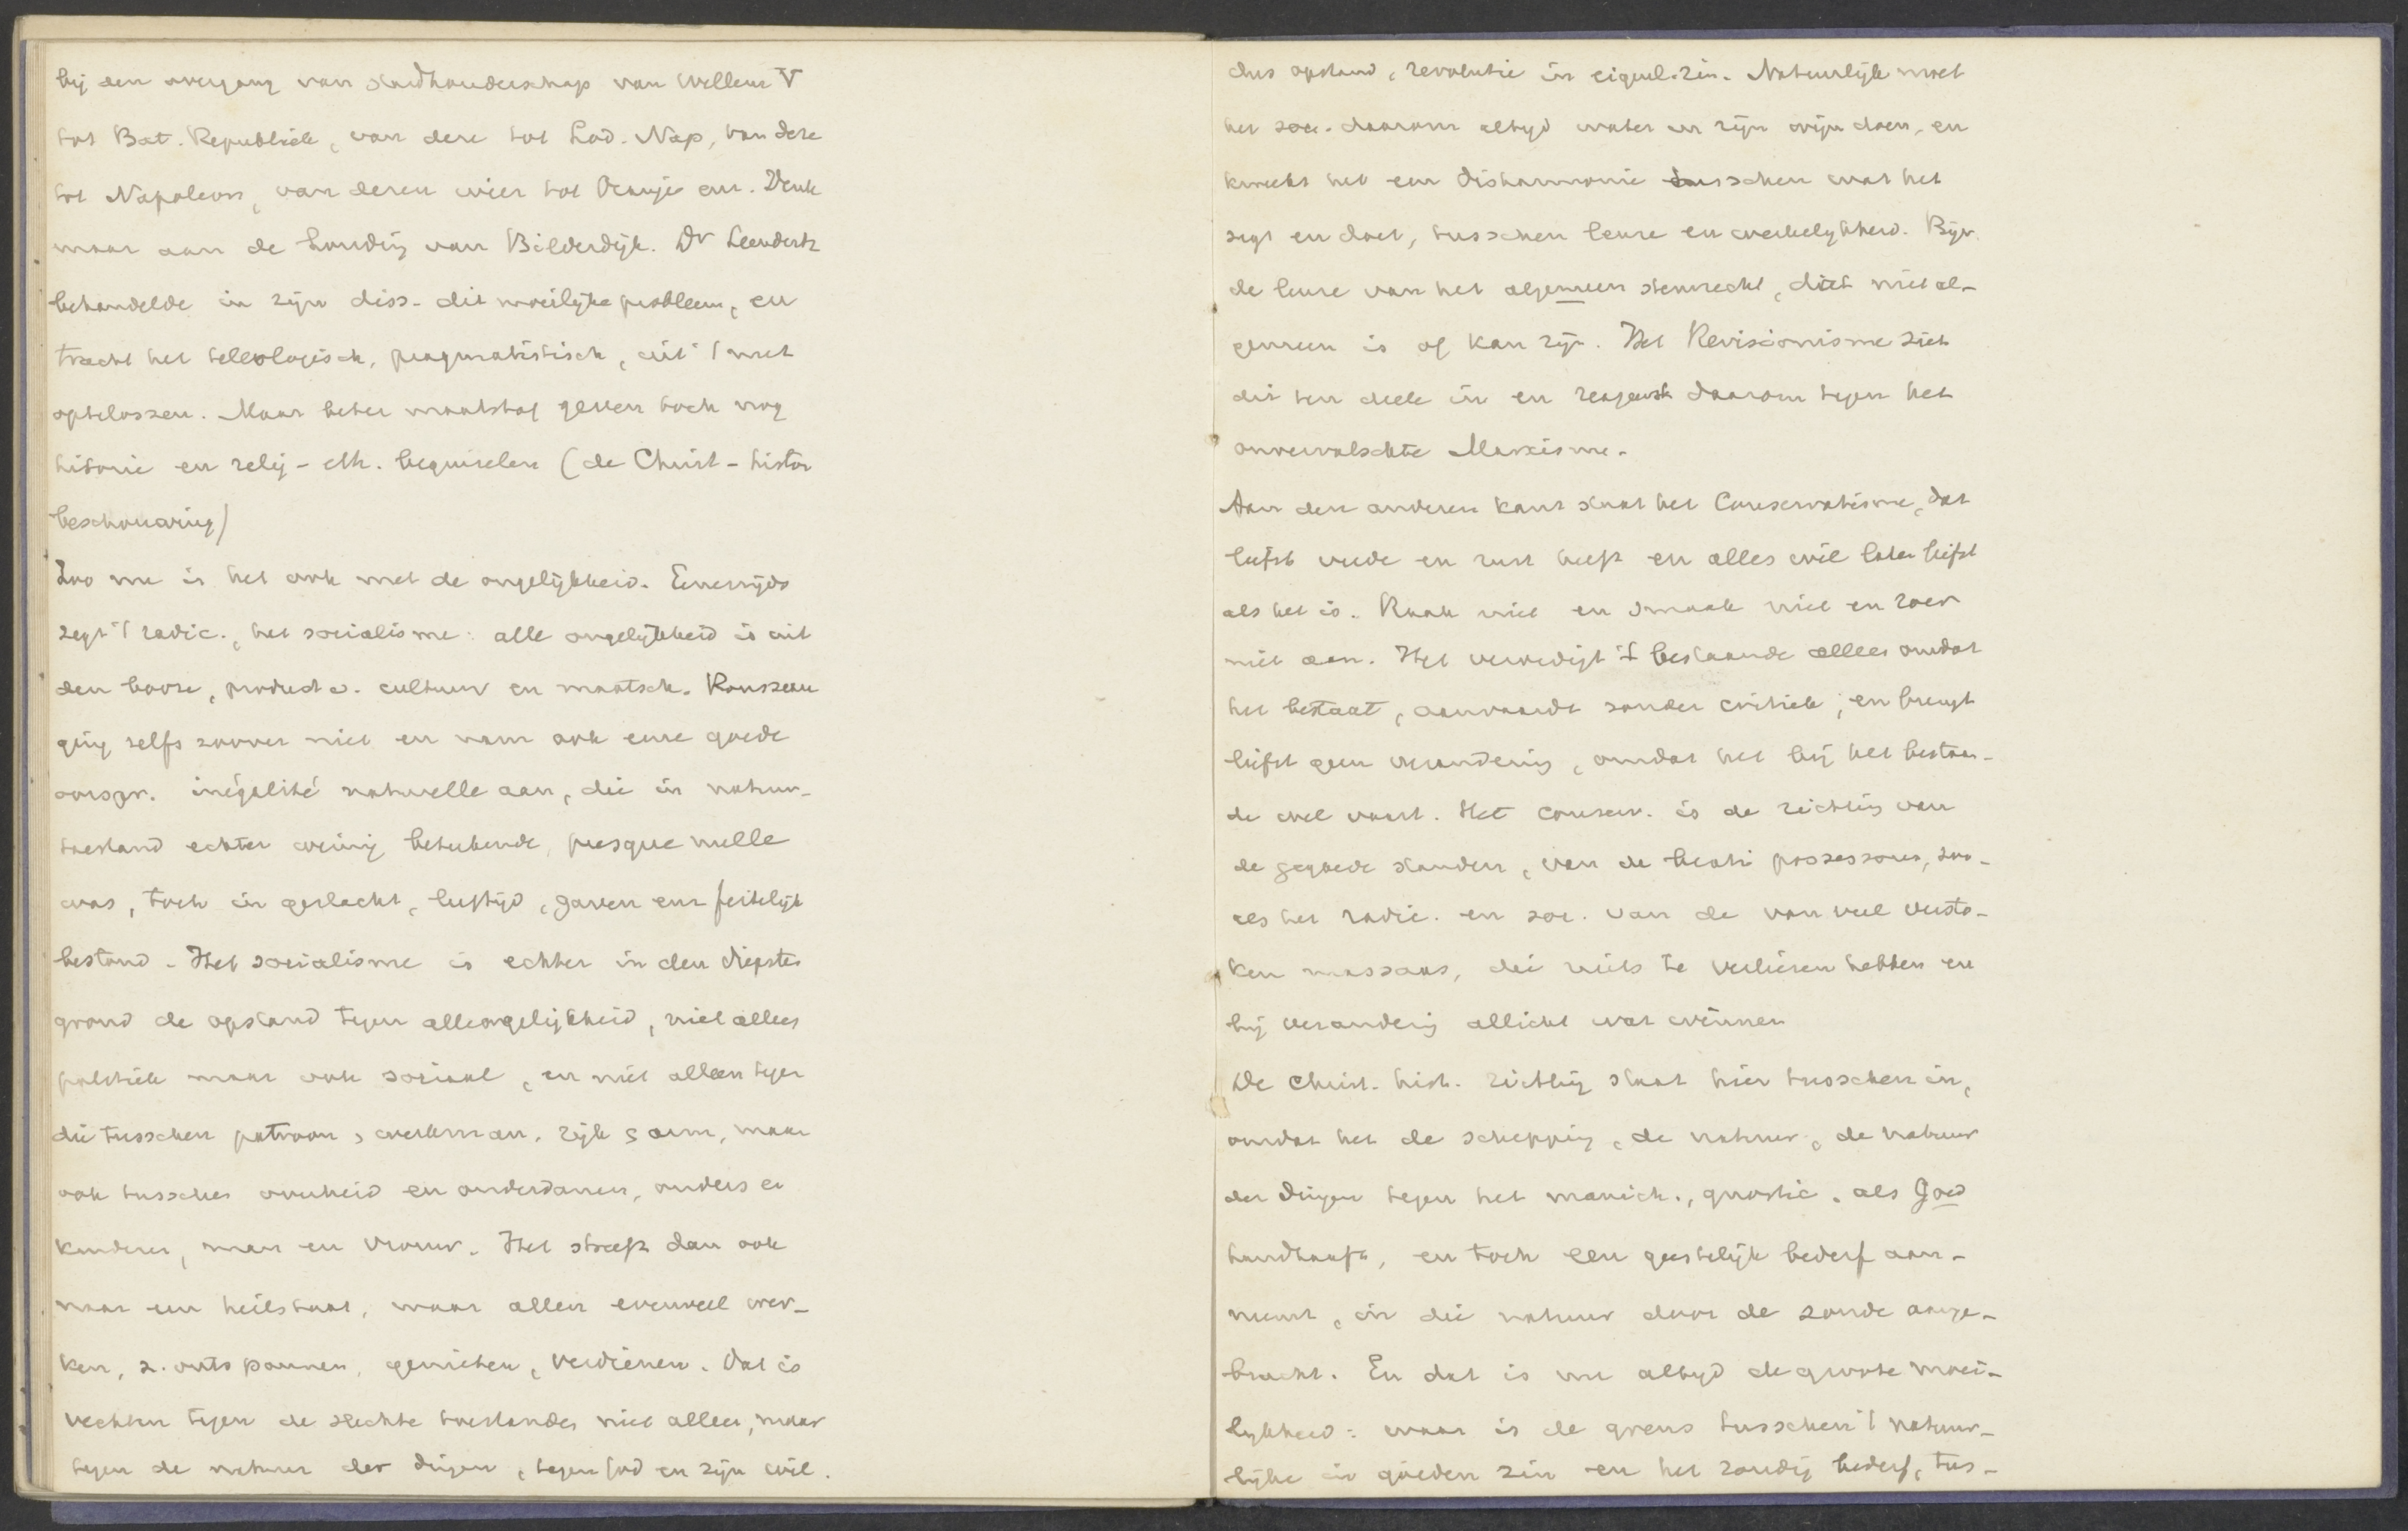 bij den overgang van stadhouderschap van Willem V
tot Bat. Republiek, van deze tot Lod. Nap, van deze
tot Napoleon, van dezen weer tot Oranje enz. Denk
maar aan de houding van Bilderdijk. Dr Leendertz
behandelde in zijn diss. dit moeilijke probleem, en
tracht het teleologisch, pragmatistisch, uit 't met
optelossen. Maar beter maatstaf geven toch nog
historie en relig-eth. beginselen (de Christ-histor
beschouwing)
Zoo nu is het ook met de ongelijkheid. Eenerzijds
zegt 't radic., het socialisme: alle ongelijkheid is uit
den booze, product v. cultuur en maatsch. Rousseau
ging zelfs zoover niet en nam ook eene goede
oorspr. inégalité naturelle aan, die in natuur-
toestand echter weinig beteekende, presque nulle
was, toch in geslacht, leeftijd, gaven enz feitelijk
bestond. Het socialisme is echter in den diepsten
grond de opstand tegen alle ongelijkheid, niet alleen
politiek maar ook sociaal, en niet alleen tegen
die tusschen patroon, werkman, rijk, arm, maar
ook tusschen overheid en onderdanen, ouders en
kinderen, man en vrouw. Het streeft dan ook
naar een heilstaat, waar allen evenveel wer-
ken, z. ontspannen, genieten, verdienen. Dat is
vechten tegen de slechte toestanden niet alleen, maar
tegen de natuur der dingen, tegen God en zijn wil.
dus opstand, revolutie in eigenl. zin. Natuurlijk moet
het soc. daarom altijd water in zijn wijn doen, en
kweekt het een disharmonie tusschen wat het
zegt en doet, tusschen leuze en werkelijkheid. Bijv.
de leuze van het algemeen stemrecht, dat niet al-
gemeen is of kan zijn. Het Revisionisme ziet
dit ten deele in en reageert daarom tegen het
onvervalschte Marxisme.
Aan den anderen kant staat het Conservatisme, dat
liefst vrede en rust heeft en alles wil laten liefst
als het is. Raak niet en smaak niet en roer
niet aan. Het verdedigt 't bestaande alleen omdat
het bestaat, aanvaardt zonder critiek; en brengt
liefst geen verandering, omdat het bij het bestaan-
de wel vaart. Het conserv. is de richting van
de gegoede standen, van de beati possessores, zoo-
als het radic. en soc. van de van veel versto-
ken massaas, die niets te verliezen hebben en
bij verandering allicht wat winnen
De Christ. hist. richting staat hier tusschen in,
omdat het de schepping, de natuur, de natuur
der dingen tegen het manich., gnostic. als Goed
handhaaft, en toch een geestelijk bederf aan-
neemt, in die natuur door de zonde aange-
bracht. En dat is nu altijd de groote moei-
lijkheid: waar is de grens tusschen 't natuur-
lijke in goeden zin en het zondig bederf, tus-